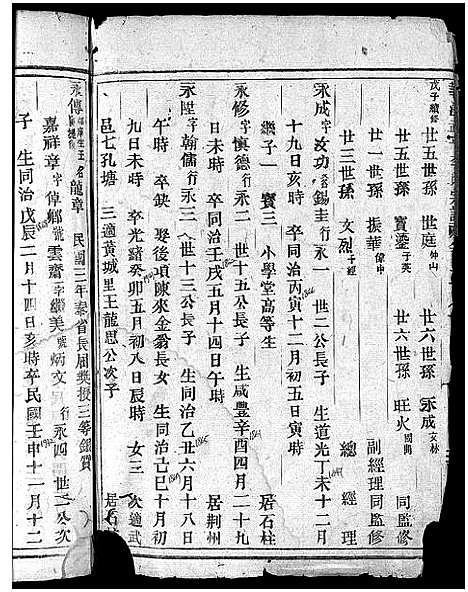 戊子續修
廿五世孫 世庭 仲山 廿六世孫 永成 文林
廿五世孫 寶鎏 子英 廿六世孫 旺火 國典 同監修
廿一世孫 振華 偉中 副經理同監修
廿三世孫 文烈 子經 總經理
永成 字汝功 名錫圭 行永一 世二公長子 生道光丁未十二月 1847
十九日亥時 卒同治丙寅十二月初五日寅時 1866
繼子一 寶三 小學堂高等生 居石柱
永修 字慎德 行永二 世十五公長子 生咸豐辛酉四月二十九
日未時 卒同治壬戌五月十四日午時 1862 居荆州
永陞 字翰儒 行永三 世十三公長子 生同治乙丑六月十八日 1865
午時 卒缺 娶後項陳來金翁長女 生同治己巳十月初 1869
九日未時 卒光緒癸卯五月初八日辰時 女三 次適武
邑七孔塘 三適黃城里王龍恩公次子 居石
永傳 名龍章 民國三年泰省長周奬授三等銀質
嘉祥章 字倬鄉 號雲齋 李繼美 號炳文 行永四 世一公次
子 生同治戊辰二月十四日亥時卒民國壬申十一月十二